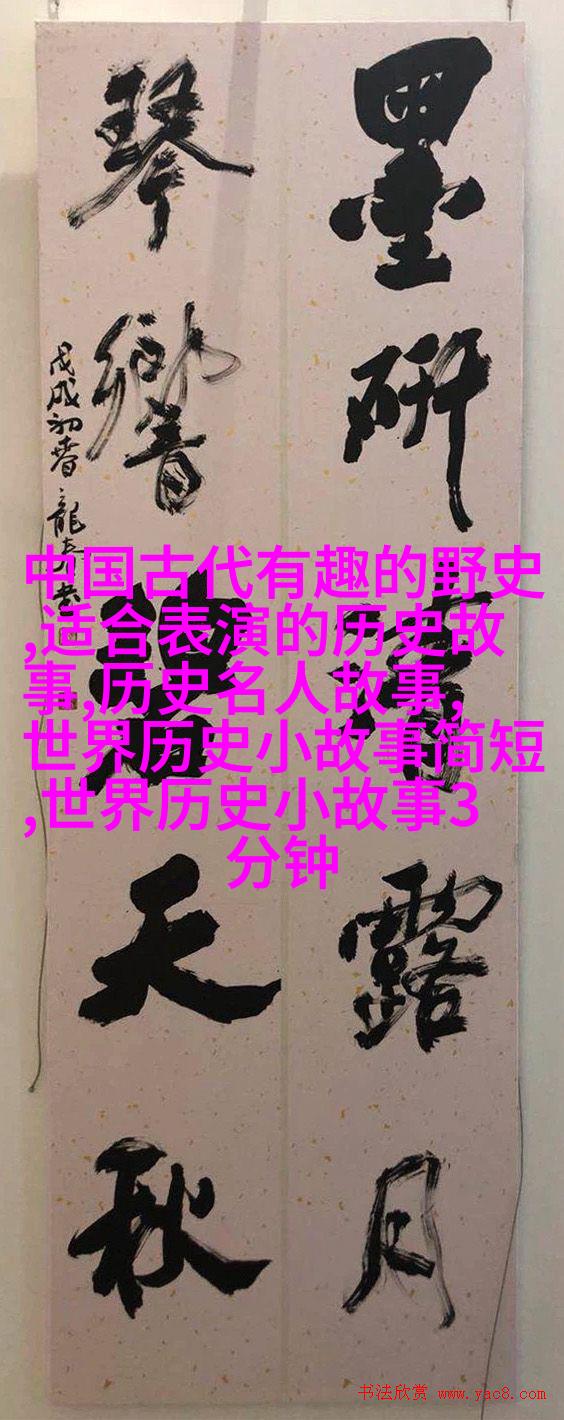 墨研清露月
琴響碧天秋
戊戌初春龍
中国古代有趣的野史
,适合表演的历史故
事,历史名人故事,
世界历史小故事简短
,世界历史小故事3
分钟
书法欣赏 www.yac8.com